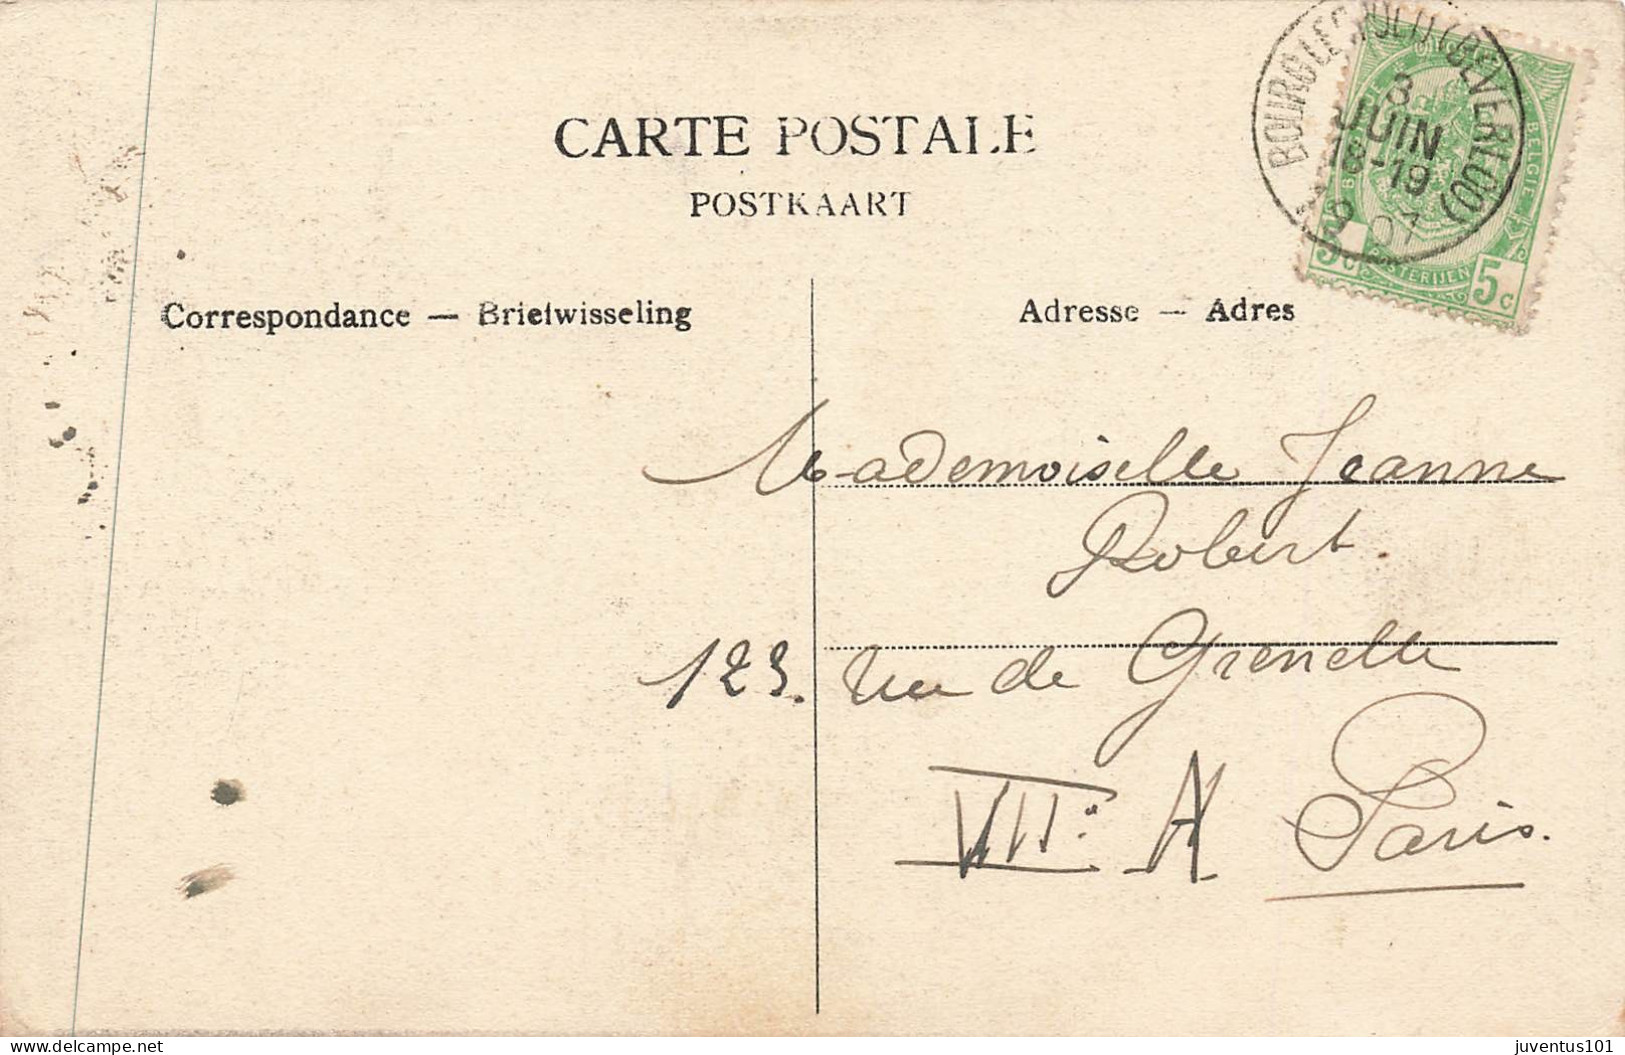 CARTE POSTALE
POSTKAART
BOURG LEOPOLD (BEVERLOO)
3
JUIN
18-19
07
BELGIE
POSTERIJEN
5c
5c
Correspondance — Briefwisseling
Adresse — Adres
Mademoiselle Jeanne
Robert.
123. rue de Grenelle
VII: A Paris.
delcampe.net
juventus101